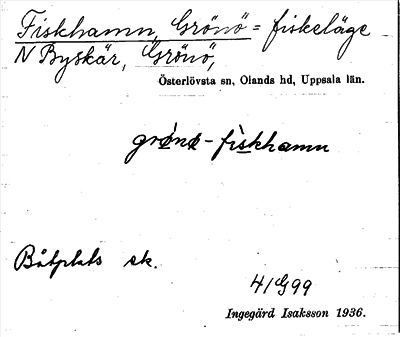 Fiskhamn, Grönö = fiskeläge
N Byskär, Grönö,
Österlövsta sn, Olands hd, Uppsala län.
-fìskhamn
Båtplats sk.
41G99
Ingegärd Isaksson 1936.